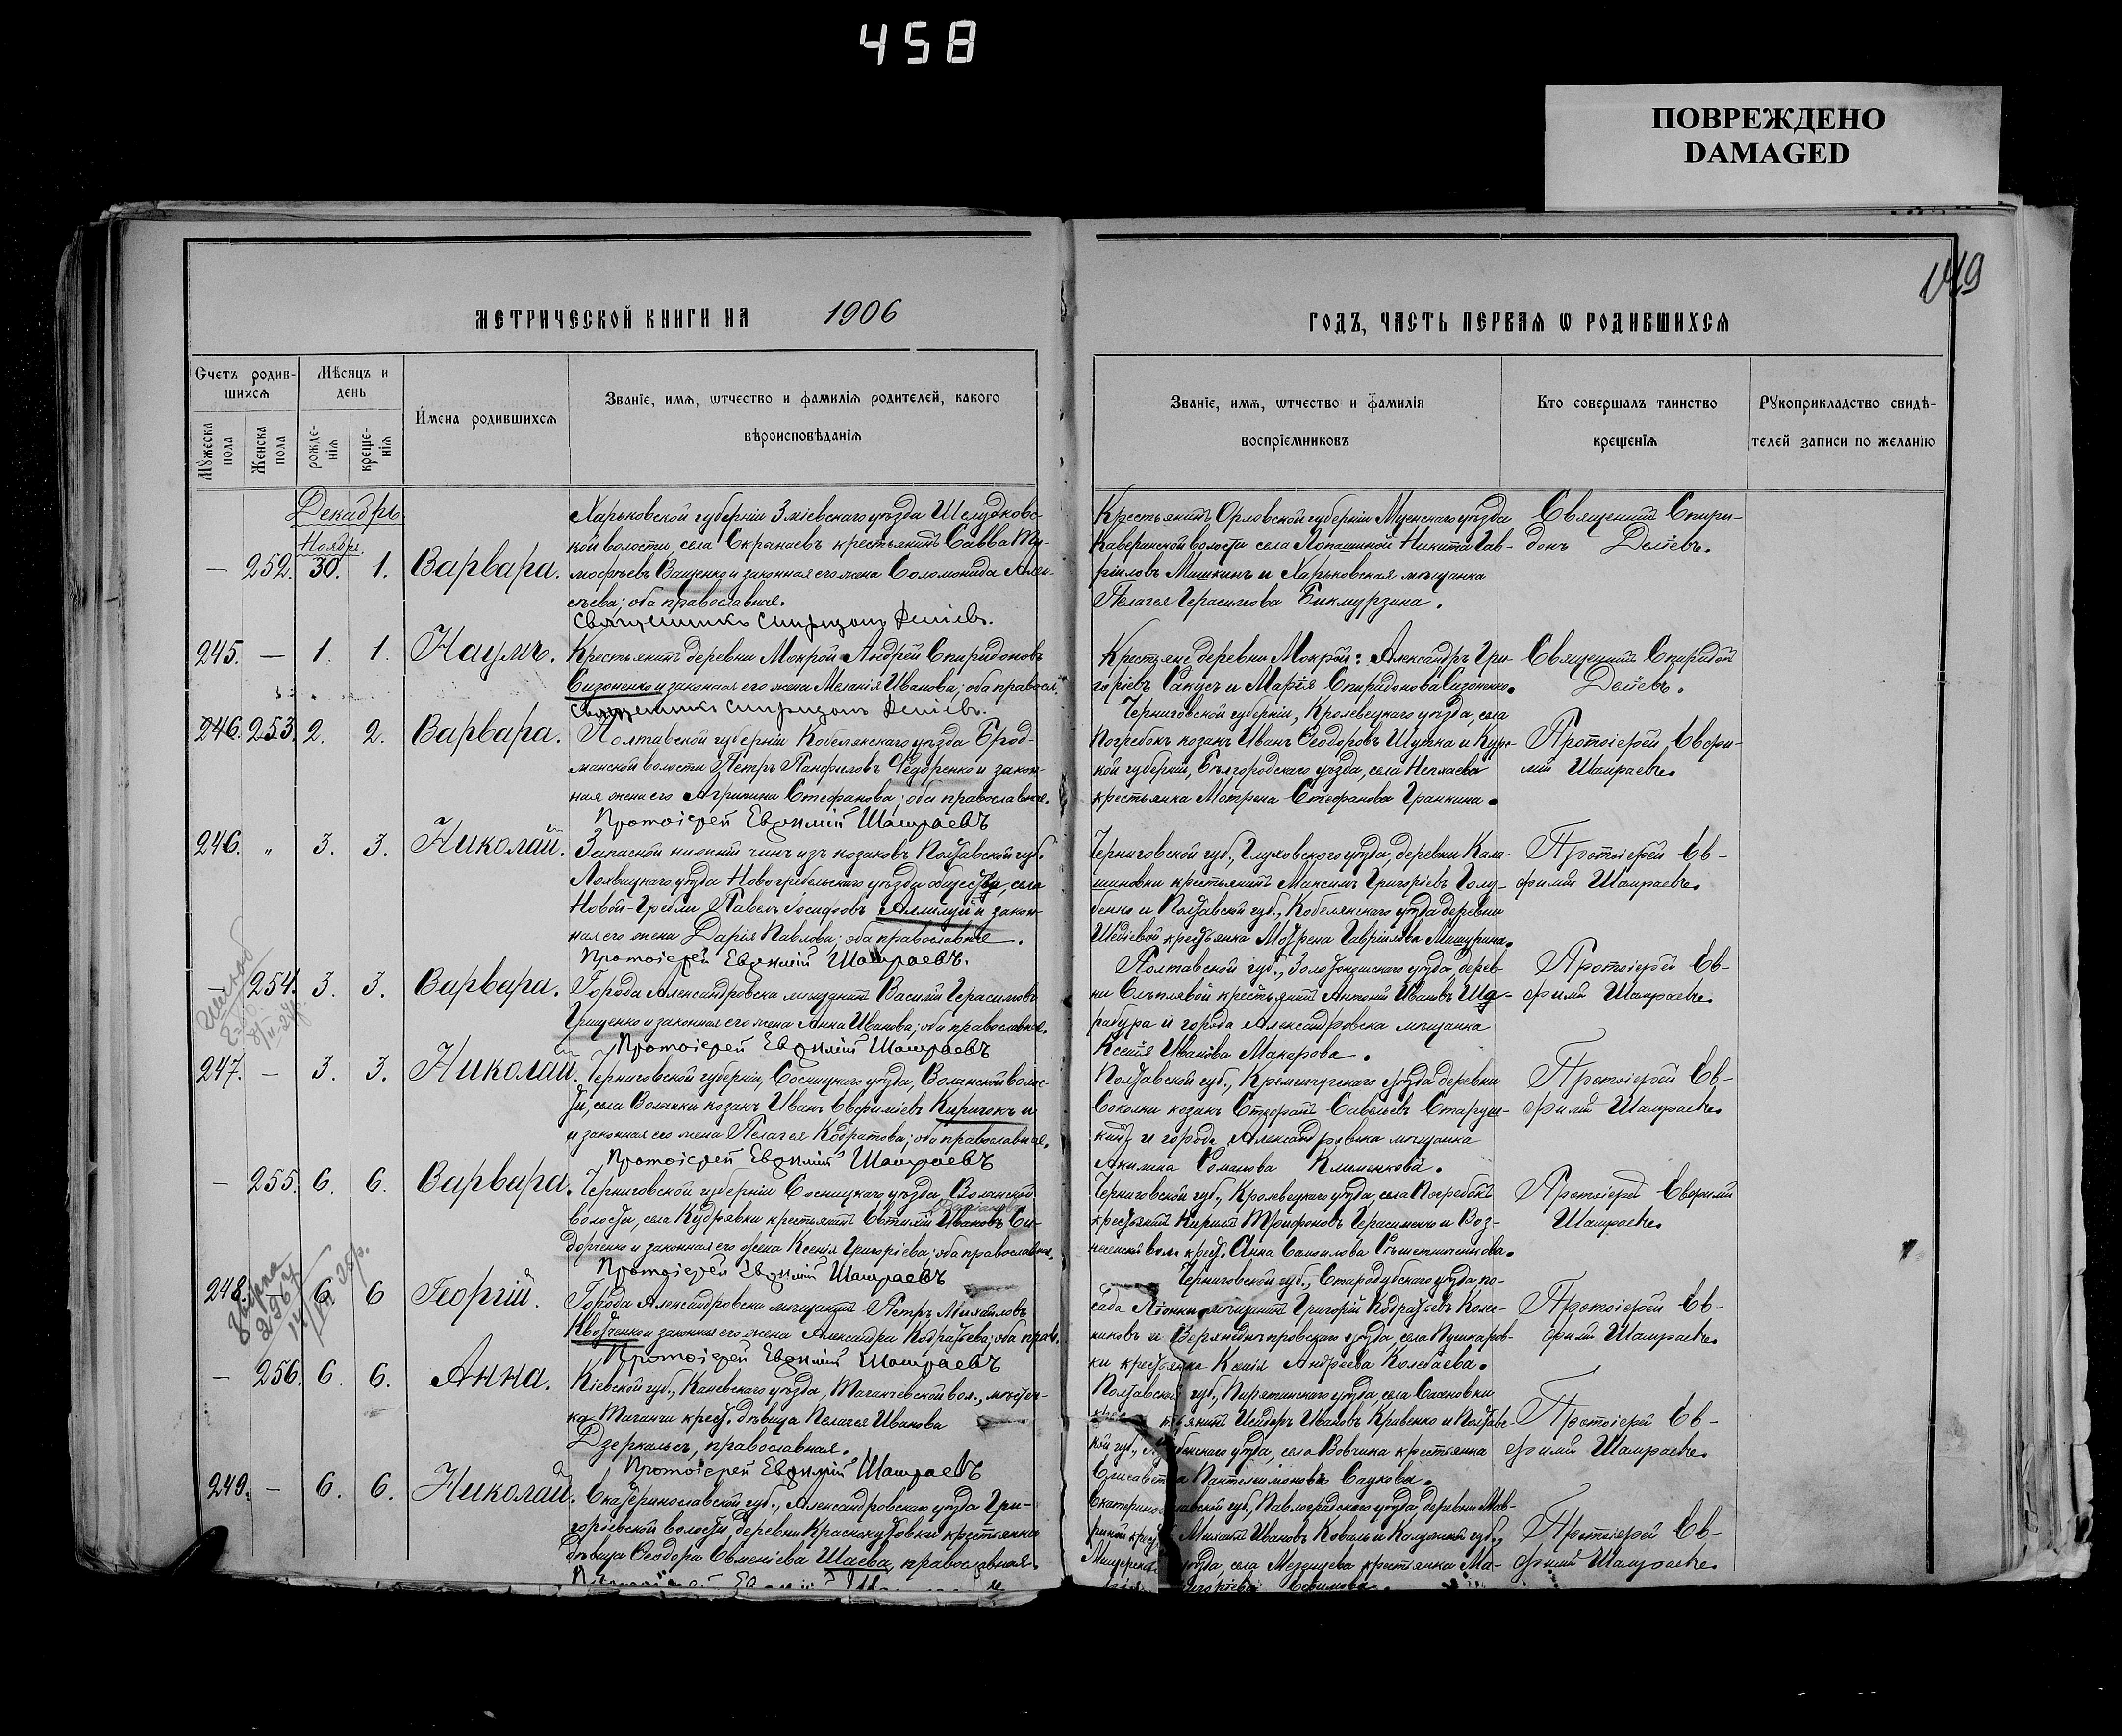 458
ПОВРЕЖДЕНО
DAMAGED
149
МЕТРИЧЕСКОЙ КНИГИ НА 1906
ГОДЪ, ЧАСТЬ ПЕРВАЯ Ѡ РОДИВШИХСЯ
Счетъ родив-
шихся
Мѣсяцъ и
день
Имена родившихся
Званіе, имя, ѿтчество и фамилія родителей, какого
вѣроисповѣданія
Мужеска пола
Женска пола
рожде-
нія
креще-
нія
Званіе, имя, ѿтчество и фамилія
воспріемниковъ
Кто совершалъ таинство
крещенія
Рукоприкладство свидѣ-
телей записи по желанію
Декабрь
Ноября.
— 252. 30. 1. Варвара.
Харьковской губерніи Зміевскаго уѣзда Шелудковс
кой волости, села Скрыпаевъ крестьянинъ Савва Ти-
мофеевъ Ващенко и законная его жена Соломонида Алек-
сѣева; оба православные.
Священникъ Спиридонъ Деліевъ.
Крестьянинъ Орловской губерніи Мценскаго уѣзда
села Никита Гав-
ріиловъ Мишкинъ и Харьковская мѣщанка
Пелагея Герасимова Бикмурзина.
Священникъ Спири-
донъ Деліевъ.
245. — 1. 1. Наумъ.
Крестьянинъ деревни Мокрой Андрей Спиридоновъ
Сизоненко и законная его жена Меланія Иванова; оба правосл.
Священникъ Спиридонъ Деліевъ.
Крестьяне деревни Мокрой: Александръ Гри-
горіевъ Сакусъ и Марія Спиридонова Сизоненко.
Священникъ Спиридонъ
Деліевъ.
246. 253. 2. 2. Варвара.
Полтавской губерніи Кобелякскаго уѣзда Брод-
щанской волости Петръ Панфиловъ Федоренко и закон-
ная жена его Агрипина Стефанова; оба православные.
Протоіерей Евѳимій Шамраевъ
Черниговской губерніи, Кролевецкаго уѣзда, села
Погребокъ козакъ Иванъ Ѳеодоровъ Шутка и Курс-
кой губерніи, Бѣлгородскаго уѣзда, села Непхаева
крестьянка Матрена Стефанова Гранкина.
Протоіерей Евфи-
мій Шамраевъ.
246. „ 3. 3. Николай.
Запасной нижній чинъ изъ козаковъ Полтавской губ.
Лохвицкаго уѣзда Новогребельскаго общества, села
Новой-Гребли Павелъ Іосифовъ Аллилуй и закон-
ная его жена Дарія Павлова; оба православные.
Протоіерей Евѳимій Шамраевъ.
Черниговской губ., Глуховскаго уѣзда, деревни Кала-
шиновки крестьянинъ Максимъ Григоріевъ Голу-
бенко и Полтавской губ., Кобелякскаго уѣзда деревни
крестьянка Мотрена Гавріилова Мишурина.
Протоіерей Ев-
фимій Шамраевъ.
— 254. 3. 3. Варвара.
Города Александровска мѣщанинъ Василій Герасимовъ
Грищенко и законная его жена Анна Иванова; оба православные.
Протоіерей Евѳимій Шамраевъ
Полтавской губ., Золотоношскаго уѣзда, дерев-
ни крестьянинъ Антоній Ивановъ Ша-
рабура и города Александровска мѣщанка
Ксенія Иванова Макарова.
Протоіерей Ев-
фимій Шамраевъ.
247. — 3. 3. Николай.
Черниговской губерніи, Сосницкаго уѣзда, Волынской волос-
ти, села Волынки козакъ Иванъ Евфиміевъ Киричокъ и
и законная его жена Пелагея Кодратова; оба православные.
Протоіерей Евѳимій Шамраевъ
Полтавской губ., Кременчугскаго уѣзда деревни
Соколки козакъ Савельевъ
и города Александровска мѣщанка
Акилина Романова Клименкова.
Протоіерей Ев-
фимій Шамраевъ.
— 255. 6. 6. Варвара.
Черниговской губерніи Сосницкаго уѣзда, Волынской
волости, села Кудрявки крестьянинъ Евтихій Ивановъ Си-
доренко и законная его жена Ксенія Григоріева; оба православные.
Протоіерей Евѳимій Шамраевъ
Черниговской губ., Кролевецкаго уѣзда, села Погребокъ
крестьянинъ Кирилъ Трифоновъ Герасименко и Воз-
несенской вол. крест. Анна Самойлова
Протоіерей Евфимій
Шамраевъ.
248. 6. 6 Георгій.
Города Александровска мѣщанинъ Петръ Михайловъ
Квотченко и законная его жена Александра Кодратьева; оба прав.
Протоіерей Евѳимій Шамраевъ
Черниговской губ., Стародубскаго уѣзда по-
сада мѣщанинъ Григорій Кодратьевъ Колес-
никовъ и Верхнеднѣпровскаго уѣзда, села Пушкаров-
ки крестьянка Ксенія Андреева
Протоіерей Ев-
фимій Шамраевъ.
— 256. 6. 6. Анна.
Кіевской губ., Каневскаго уѣзда, Таганчевской вол., мѣстеч-
ка Таганчи крест. дѣвица Пелагея Иванова
Дзеркалъсъ, православная.
Протоіерей Евѳимій Шамраевъ
Полтавской губ., Пирятинскаго уѣзда села Сасновки
Исидоръ Ивановъ Кривенко и Полтавс-
кой губ., уѣзда, села Вовчика крестьянка
Елисавета Пантелеимонова Саукова.
Протоіерей Ев-
фимій Шамраевъ.
249. — 6. 6. Николай.
Екатеринославской губ., Александровскаго уѣзда Гри-
горіевской волости, деревни Краснокутовки крестьянка
дѣвица Ѳеодора Евменіева Шаева, православная.
Екатеринославской губ., Павлоградскаго уѣзда, деревни Мав-
риной крест. Михаилъ Ивановъ Коваль и Калужской губ.,
уѣзда, села крестьянка Ма-
Протоіерей Ев-
фимій Шамраевъ.